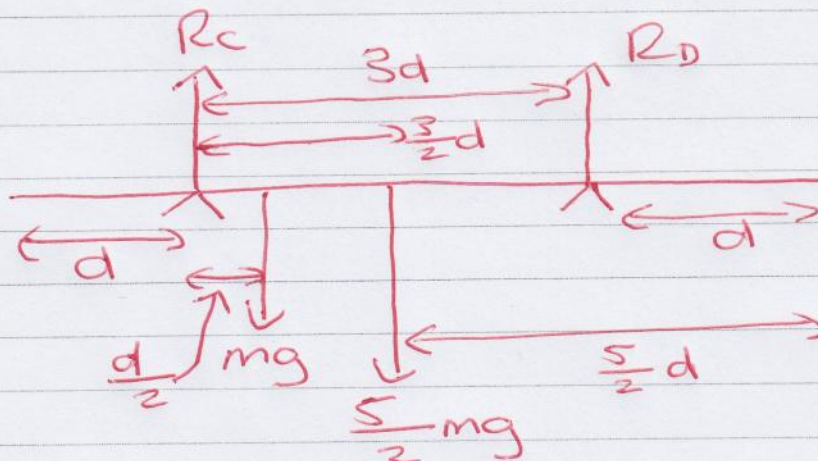 Rc
3d
RD
3/2 d
d
d
d/2
mg
5/2 d
5/2 mg